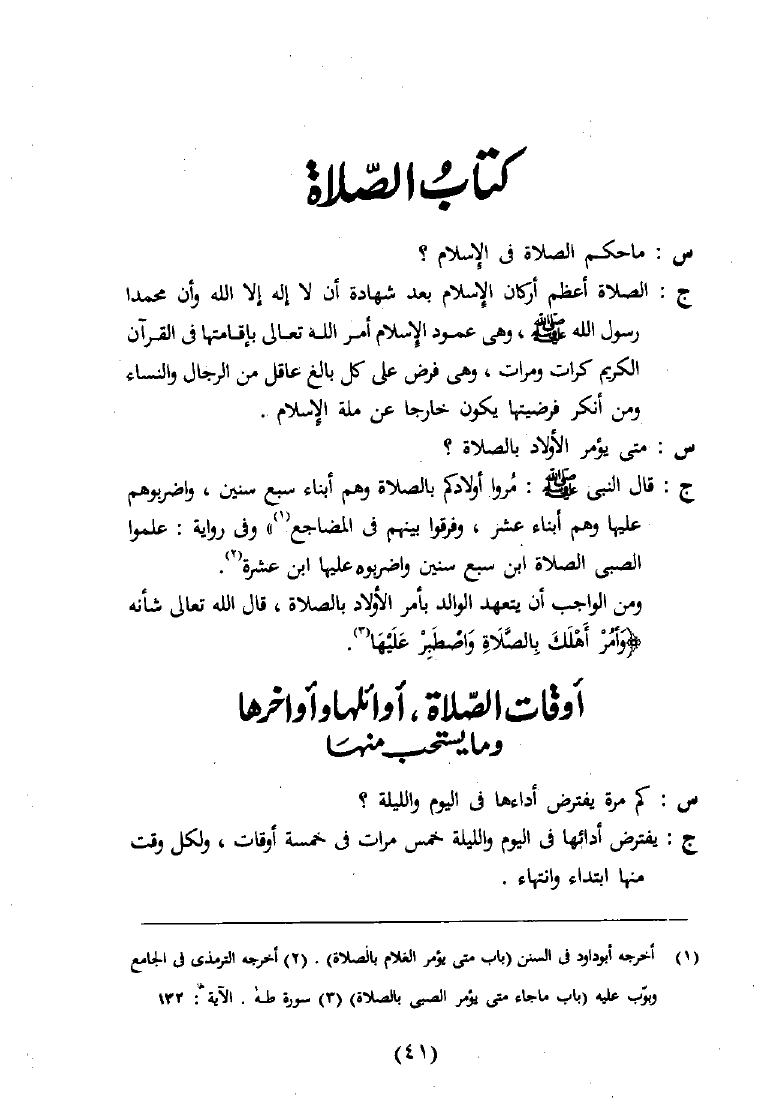 كتابُ الصّلاة
س : ماحكم الصلاة فى الإسلام ؟
ج : الصلاة أعظم أركان الإسلام بعد شهادة أن لا إله إلا الله وأن محمدا
رسول الله ﷺ ، وهى عمود الإسلام أمر الله تعالى بإقامتها فى القرآن
الكريم كرات ومرات ، وهى فرض على كل بالغ عاقل من الرجال والنساء
ومن أنكر فرضيتها يكون خارجا عن ملة الإسلام .
س : متى يؤمر الأولاد بالصلاة ؟
ج : قال النبى ﷺ : مُروا أولادكم بالصلاة وهم أبناء سبع سنين ، واضربوهم
عليها وهم أبناء عشر ، وفرقوا بينهم فى المضاجع(١)» وفى رواية : علموا
الصبى الصلاة ابن سبع سنين واضربوه عليها ابن عشرة(٢).
ومن الواجب أن يتعهد الوالد بأمر الأولاد بالصلاة ، قال الله تعالى شأنه
﴿وَأْمُرْ أَهْلَكَ بِالصَّلَاةِ وَاصْطَبِرْ عَلَيْهَا﴾(٣).
أوقات الصّلاة ، أوائلها وأواخرها
وما يستحب منها
س : كم مرة يفترض أداءها فى اليوم والليلة ؟
ج : يفترض أدائها فى اليوم والليلة خمس مرات فى خمسة أوقات ، ولكل وقت
منها ابتداء وانتهاء .
(١) أخرجه أبوداود فى السنن (باب متى يؤمر الغلام بالصلاة) . (٢) أخرجه الترمذى فى الجامع
وبوّب عليه (باب ماجاء متى يؤمر الصبى بالصلاة) (٣) سورة طه . الآية : ١٣٢
(٤١)